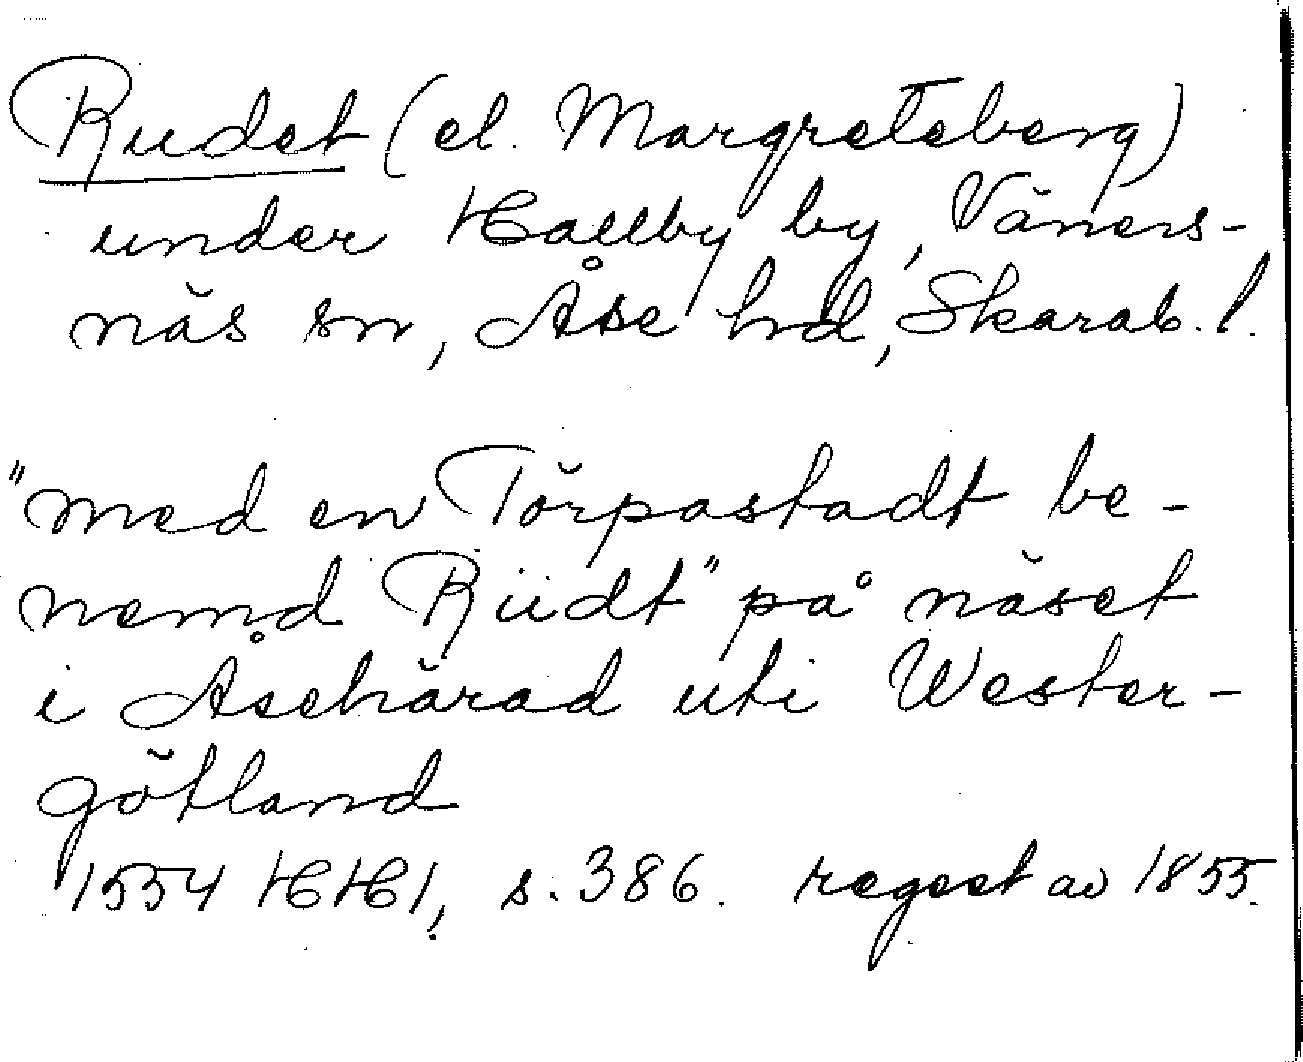 Rudet (el. Margreteberg)
under Hallby by, Väners-
näs sn, Åse hd, Skarab. l.
"med en Törpastadt be-
nemd Rüdt" på näset
i Åsehärad uti Wester-
götland
1554 HH1, s. 386. regest av 1855.